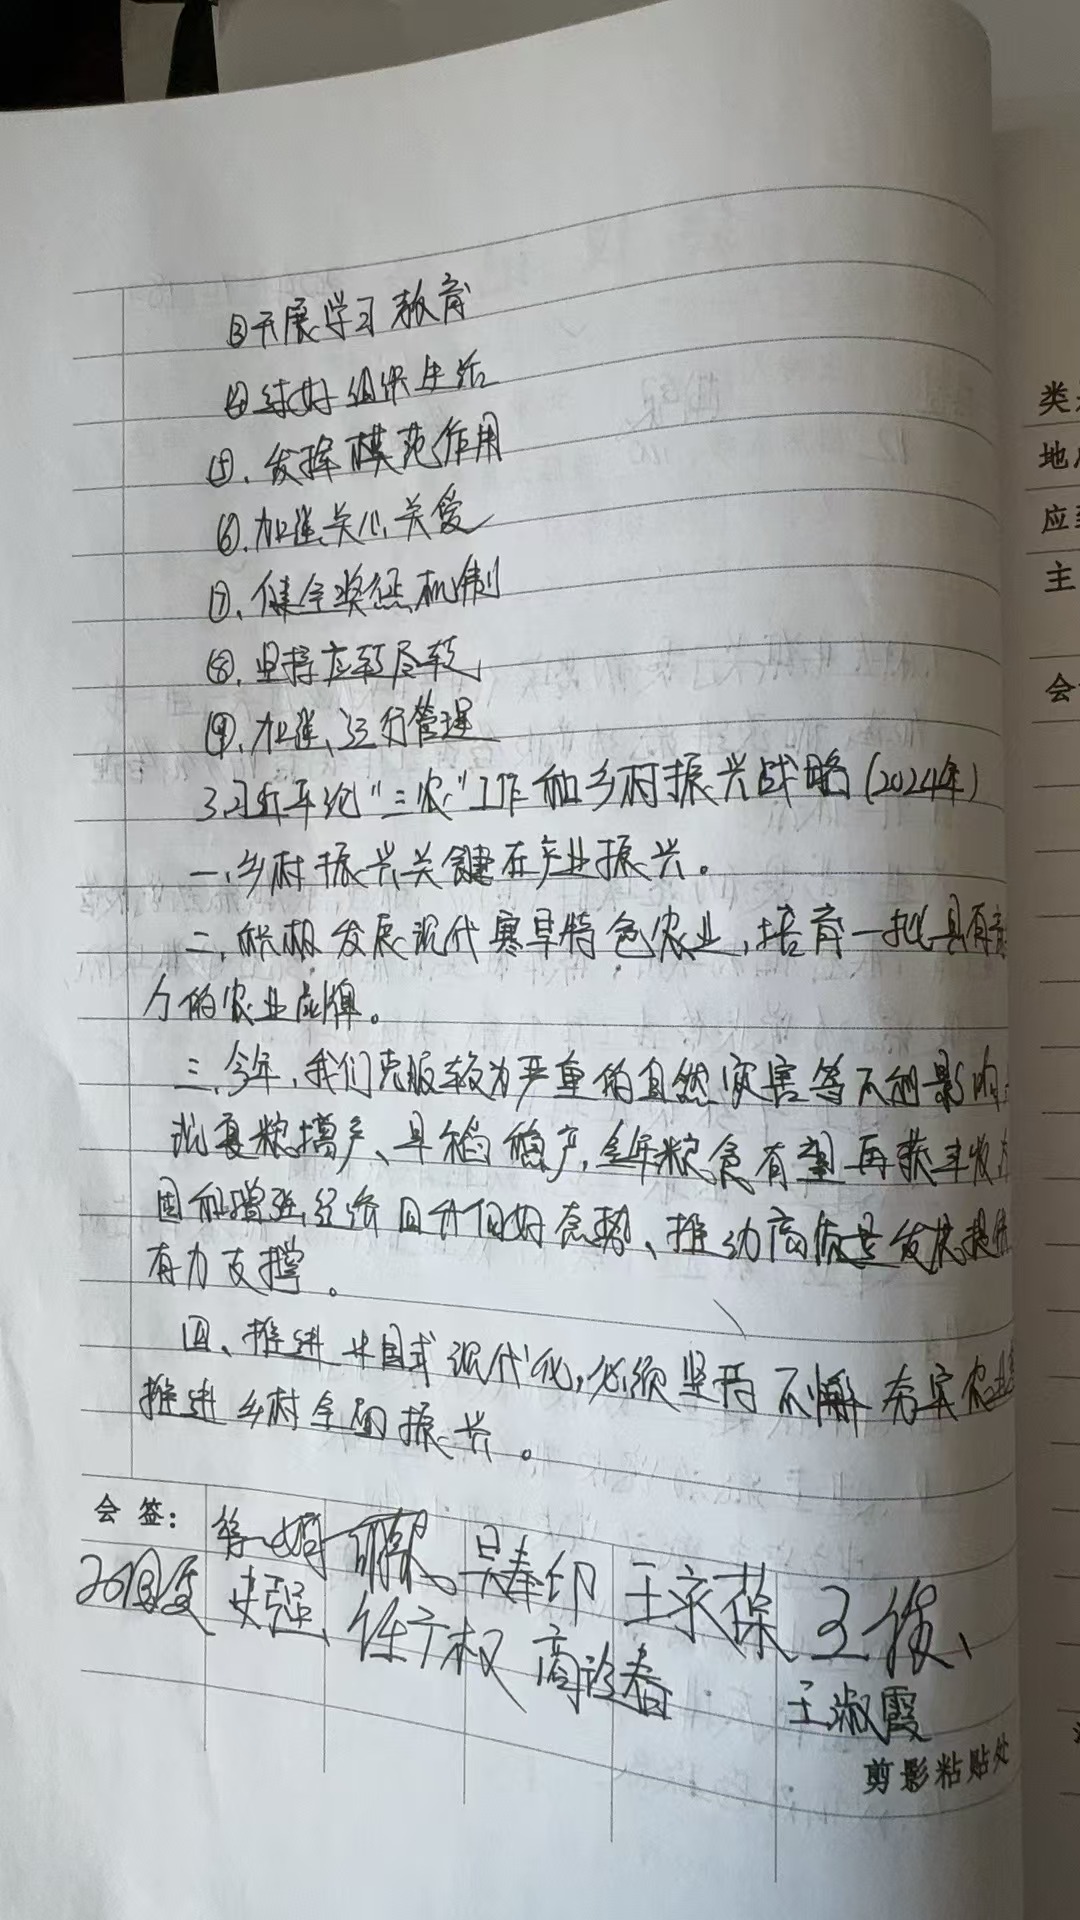 ③开展学习教育
④过好组织生活
⑤、发挥模范作用
⑥、加强关心关爱
⑦、健全奖惩机制
⑧、坚持应转尽转
⑨、加强运行管理
3.习近平论"三农"工作和乡村振兴战略(2024年)
一、乡村振兴关键在产业振兴。
二、积极发展现代寒旱特色农业,培育一批具有
力的农业品牌。
三、今年,我们克服较为严重的自然灾害等不利影响
夏粮增产、早稻稳产,全年粮食有望再获丰收
回和增强、经济回升向好态势、推动高质量发展提供
有力支撑。
四、推进中国式现代化,必须坚持不懈夯实农业
推进乡村全面振兴。
会签:
史强 任广权 吴奉印 王家葆 王俊
王淑霞
剪影粘贴处
类
地
应
主
会